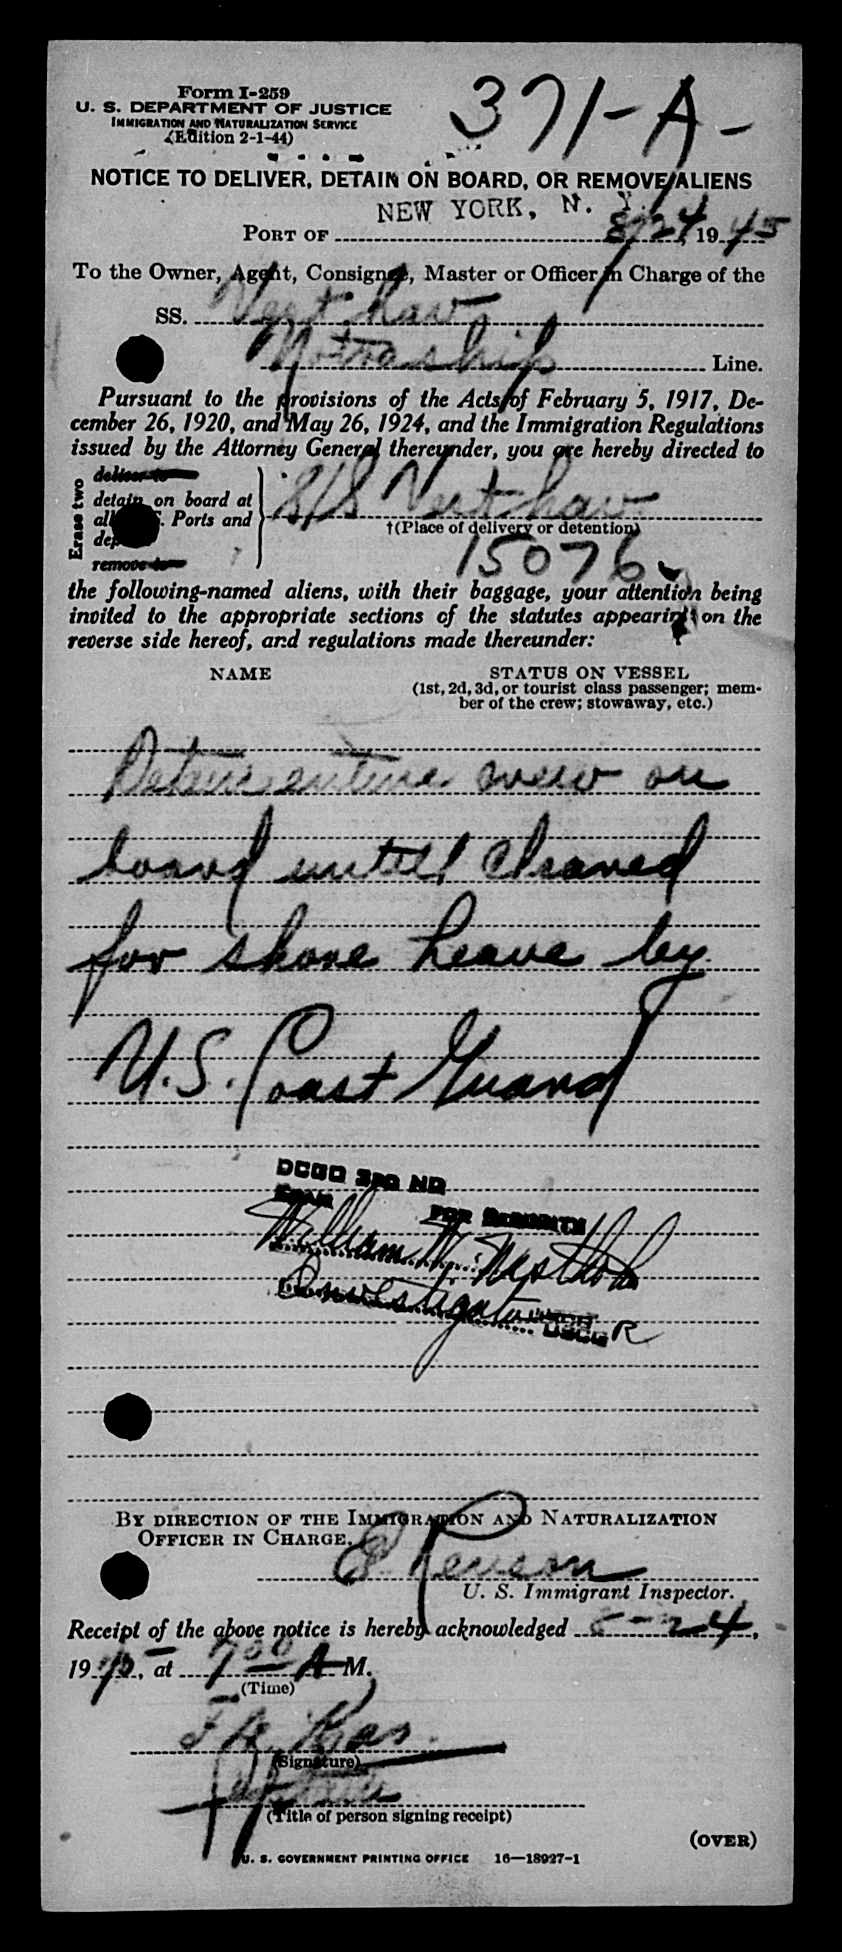 Form I-259
U. S. DEPARTMENT OF JUSTICE
IMMIGRATION AND NATURALIZATION SERVICE
(Edition 2-1-44)
371-A-
NOTICE TO DELIVER, DETAIN ON BOARD, OR REMOVE ALIENS
NEW YORK, N. Y.
PORT OF 8/24, 1945
To the Owner, Agent, Consignee, Master or Officer in Charge of the
SS.
Line.
Pursuant to the provisions of the Acts of February 5, 1917, De-
cember 26, 1920, and May 26, 1924, and the Immigration Regulations
issued by the Attorney General thereunder, you are hereby directed to
Erase two
deliver to
detain on board at
all Ports and
remove to
S/S
†(Place of delivery or detention)
15076
the following-named aliens, with their baggage, your attention being
invited to the appropriate sections of the statutes appearing on the
reverse side hereof, and regulations made thereunder:
NAME
STATUS ON VESSEL
(1st, 2d, 3d, or tourist class passenger; mem-
ber of the crew; stowaway, etc.)
Detain entire crew on
board until cleared
for shore leave by
U.S. Coast Guard
DCGO 3RD ND
William W.
Investigator
USCGR
BY DIRECTION OF THE IMMIGRATION AND NATURALIZATION
OFFICER IN CHARGE.
U. S. Immigrant Inspector.
Receipt of the above notice is hereby acknowledged 8-24,
1945, at 7 00 A M.
(Time)
(Signature)
(Title of person signing receipt)
(OVER)
U. S. GOVERNMENT PRINTING OFFICE 16—18927-1